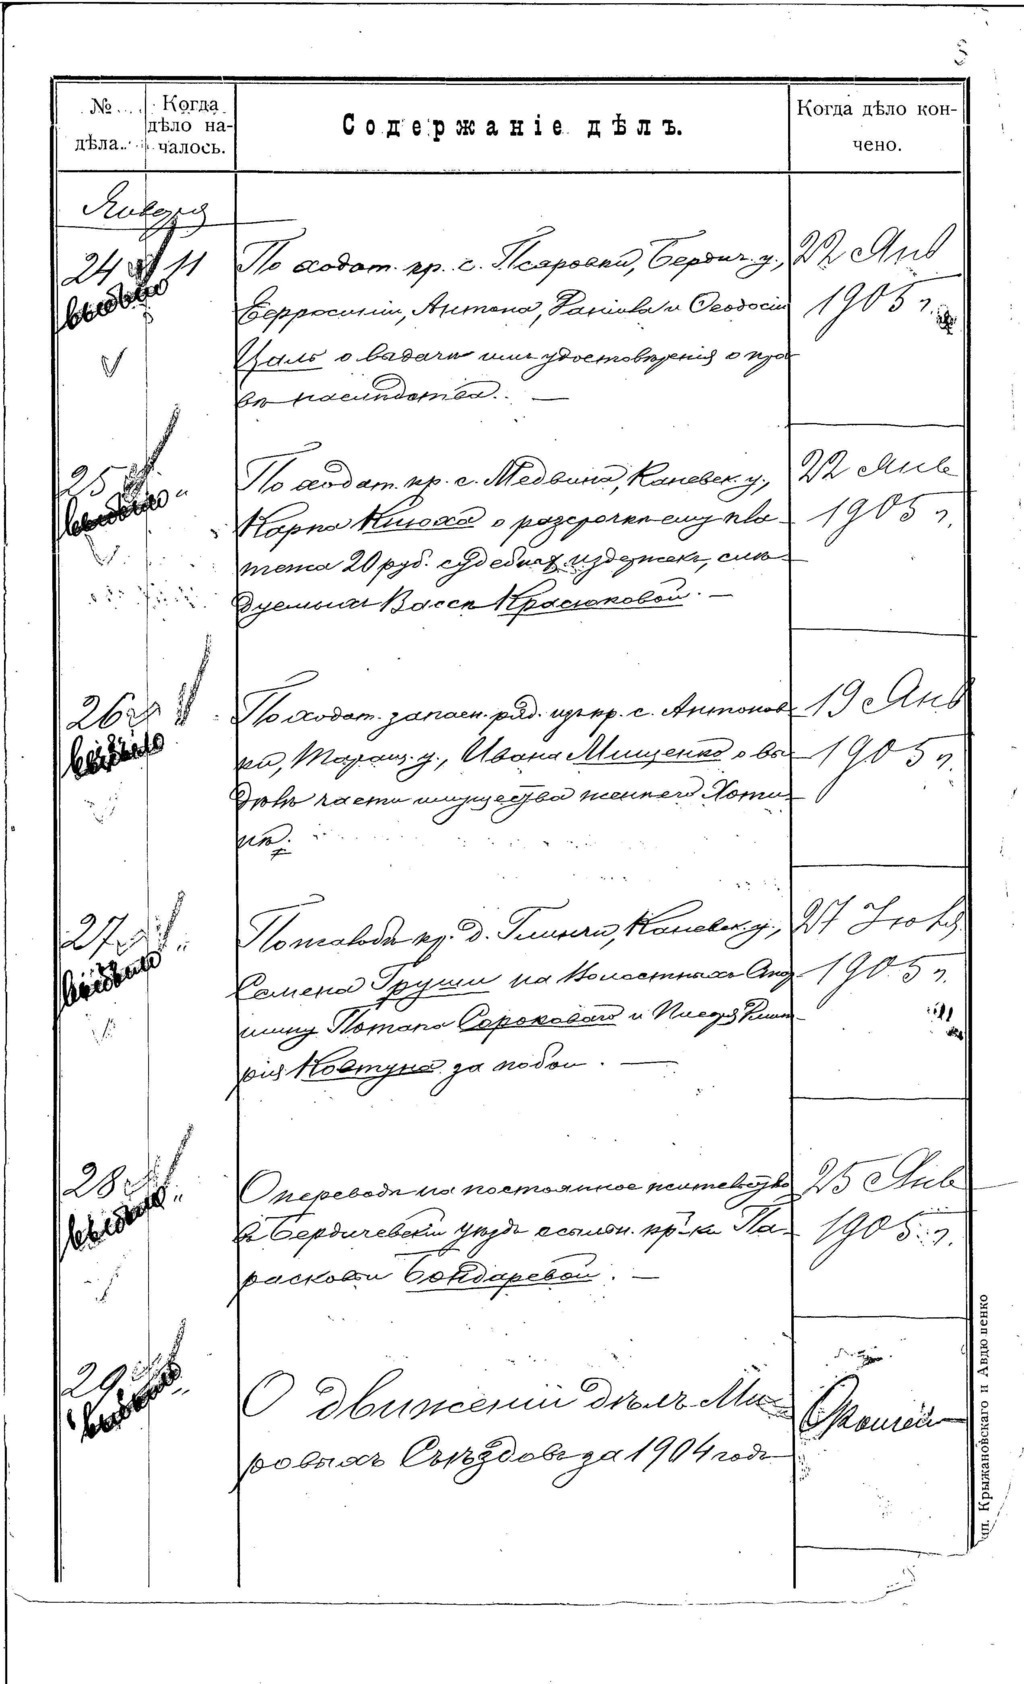 № дѣла.
Когда дѣло началось.
Содержаніе дѣлъ.
Когда дѣло кончено.
Января
24
11
выбыло
По ходат. кр. с. Псяровки, Бердич. у.,
Ефросиніи, Антона, Даніила и Ѳеодосіи
Цаль о выдачи имъ удостовѣренія о пра
вѣ наслѣдства. —
22 Янв
1905 г.
25
"
выбыло
По ходат. кр. с. Медвина, Каневск. у.,
Карпа Кнюха о разсрочкѣ ему пла
тежа 20 руб. судебныхъ издержекъ, слѣ
дуемыхъ Вассѣ Красюковой. —
22 Янв
1905 г.
26
"
выбыло
По ходат. запасн. ряд. изъ кр. с. Антонов
ки, Таращ. у., Ивана Мищенко о вы
дѣлѣ части имущества женѣ его Хоти
нѣ.
19 Янв
1905 г.
27
"
выбыло
По жалобѣ кр. д. Глинчи, Каневск. у.,
Семена Груши на Волостныхъ Стар
шину Потапа Сорокового и Писаря Дмит
рія Ковтуна за побои. —
27 Іюля
1905 г.
28
"
выбыло
О переводѣ на постоянное жительство
въ Бердичевскій уѣздъ ссыльн. кр-ки Па
расковіи Бондаревой. —
25 Янв
1905 г.
29
"
выбыло
О движеніи дѣлъ Ми
ровыхъ Съѣздовъ за 1904 годъ
Окончен
Крыжановскаго и Авдюшенко